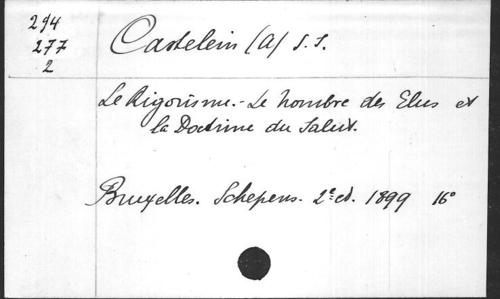 294
277
2
Castelein (A) S. J.
Le Rigorisme. - Le Nombre des Elus et
la Doctrine du Salut.
Bruxelles. Schepens. 2e ed. 1899 16°